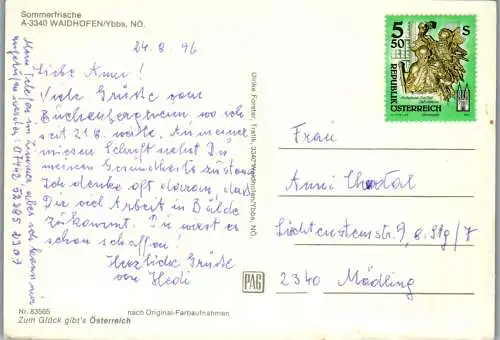 Sommerfrische
A-3340 WAIDHOFEN/Ybbs, NÖ.
24. 8. 96
Liebe Anni!
Viele Grüße vom
Buchenberg, wo ich
seit 21.8. weile. An meiner
miesen Schrift siehst Du
meinen Gesundheitszustand.
Ich denke oft daran, daß
Dir viel Arbeit in Bälde
zukommt. Du wirst es
schon schaffen!
Herzliche Grüße
von Hedi
Mein Telefon im Zimmer, aber ich kann nur
angerufen werden: 07442
Ulrike Forster Trafik, 3340 Waidhofen/Ybbs, NÖ.
5
50
S
REPUBLIK
ÖSTERREICH
Frau
Anni
Liechtensteinstr. 9, 2. Stg/7
2340 Mödling
PAG
Nr. 83565
nach Original-Farbaufnahmen
Zum Glück gibt's Österreich